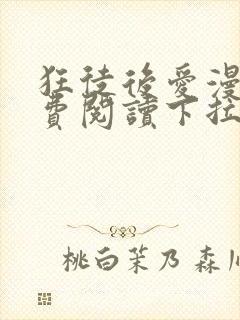 狂徒後愛漫
費閱讀下拉
桃白茉乃 森川